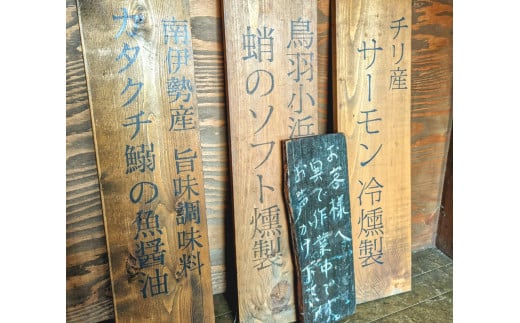 チリ産
サーモン冷燻製
鳥羽小浜
蛸のソフト燻製
お客様へ
奥で作業中です
お声かけ下さい
南伊勢産 旨味調味料
カタクチ鰯の魚醤油